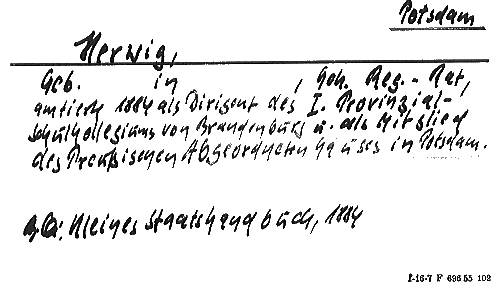 Potsdam
Herwig,
Geb. in , Geh. Reg.-Rat,
amtierte 1884 als Dirigent des I. Provinzial-
schulkollegiums von Brandenburg u. als Mitglied
des Preußischen Abgeordneten Hauses in Potsdam.
Kleines Staatshandbuch, 1884
I-16-7 F 696 55 102